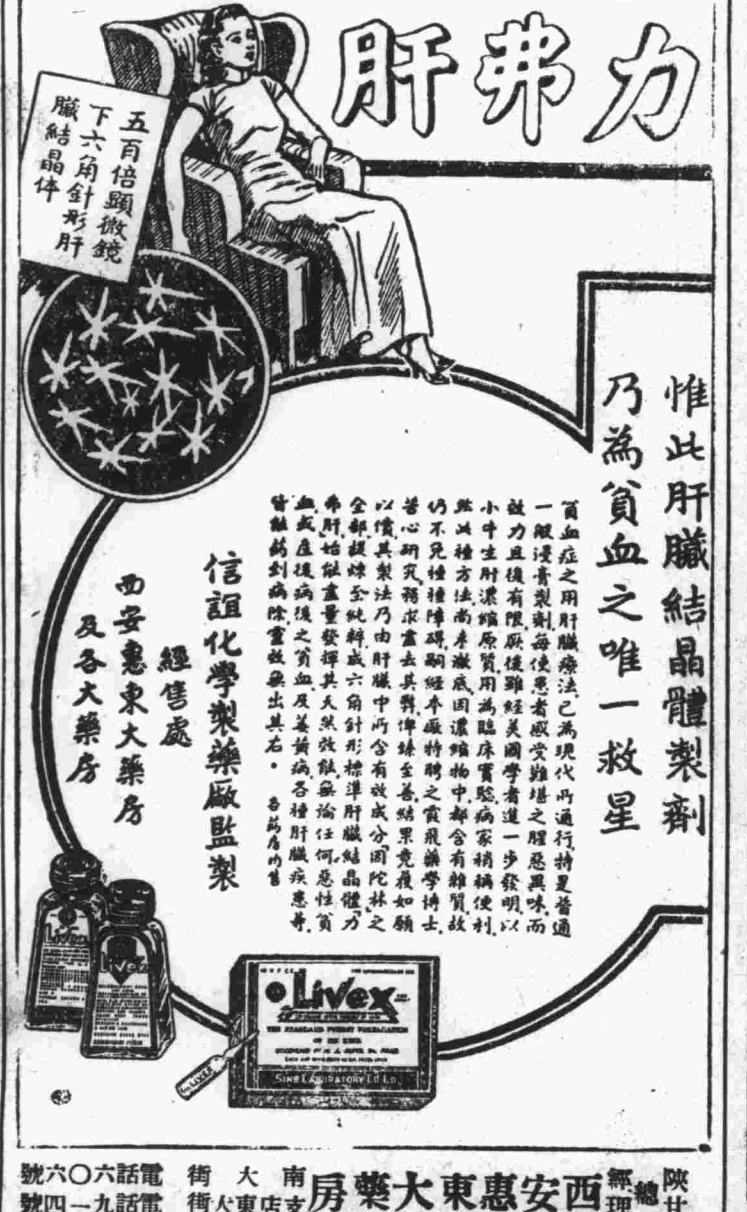 力弗肝
五百倍顯微鏡
下六角針形肝
臟結晶体
惟此肝臟結晶體製劑
乃為貧血之唯一救星
貧血症之用肝臟療法,已為現代所通行,特是普通
一般浸膏製劑,每使患者感受難堪之腥惡異味,而
效力且復有限,厥後雖經美國學者進一步發明,以
小牛生肝濃縮原質,用為臨床實驗,病家稍稱便利,
然此種方法,尚未澈底,因濃縮物中,都含有雜質,故
仍不免種種障碍,嗣經本廠特聘之霞飛藥學博士,
苦心研究,務求盡去其弊,俾臻至善,結果竟獲如願
以償,其製法乃由肝臟中所含有效成分「因陀林」之
全部提煉至純粹,成六角針形標準肝臟結晶體「力
弗肝」始能盡量發揮其天然效能,無論任何惡性貧
血或產後病後之貧血,及萎黃病各種肝臟疾患等,
皆能藥到病除,靈效無出其右。 各藥房均售
信誼化學製藥廠監製
經售處
西安惠東大藥房
及各大藥房
Livex
Livex
Livex
THE STANDARD POTENT PREPARATION
OF THE LIVER
SINE LABORATORY LD LD
LIVEX
陝甘
總經理
西安惠東大藥房
南大街
支店東大街
電話六〇六號
電話九一四號